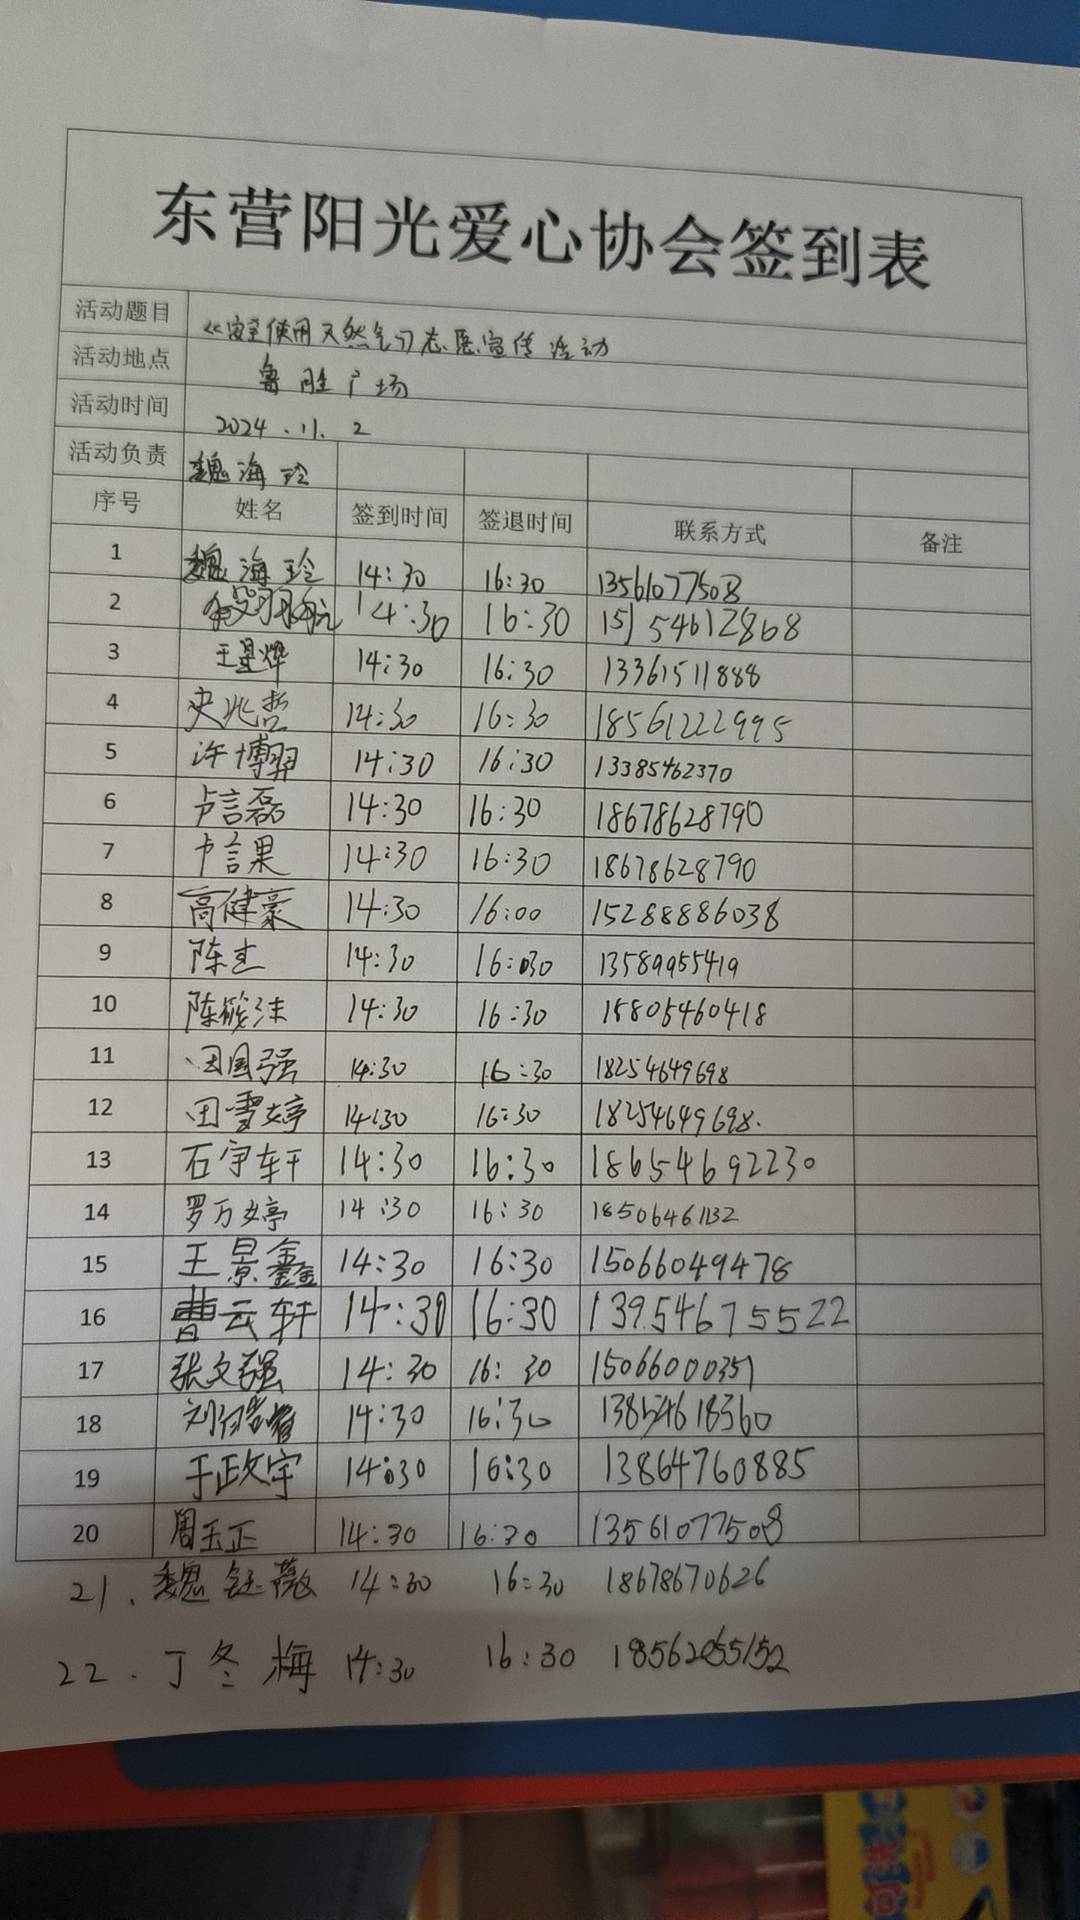 东营阳光爱心协会签到表
活动题目 《安全使用天然气》志愿宣传活动
活动地点 鲁胜广场
活动时间 2024.11.2
活动负责 魏海玲
序号 姓名 签到时间 签退时间 联系方式 备注
1 魏海玲 14:30 16:30 13561077508
2 14:30 16:30 15154612868
3 王昱烨 14:30 16:30 13361511888
4 史兆哲 14:30 16:30 18561222995
5 许博羿 14:30 16:30 13385462370
6 卢言磊 14:30 16:30 18678628790
7 卢言果 14:30 16:30 18678628790
8 高健豪 14:30 16:00 15288886038
9 陈 14:30 16:30 13589955419
10 陈筱沫 14:30 16:30 15805460418
11 田国强 14:30 16:30 18254649698
12 田雪婷 14:30 16:30 18254649698.
13 石宇轩 14:30 16:30 18654692230
14 罗万婷 14:30 16:30 18506461132
15 王景鑫 14:30 16:30 15066049478
16 曹云轩 14:30 16:30 13954675522
17 张文强 14:30 16:30 15066000351
18 刘 14:30 16:30 13854618360
19 于政宇 14:30 16:30 13864760885
20 周玉正 14:30 16:30 13561077508
21. 魏钰薇 14:30 16:30 18678670626
22. 丁冬梅 14:30 16:30 18562055152